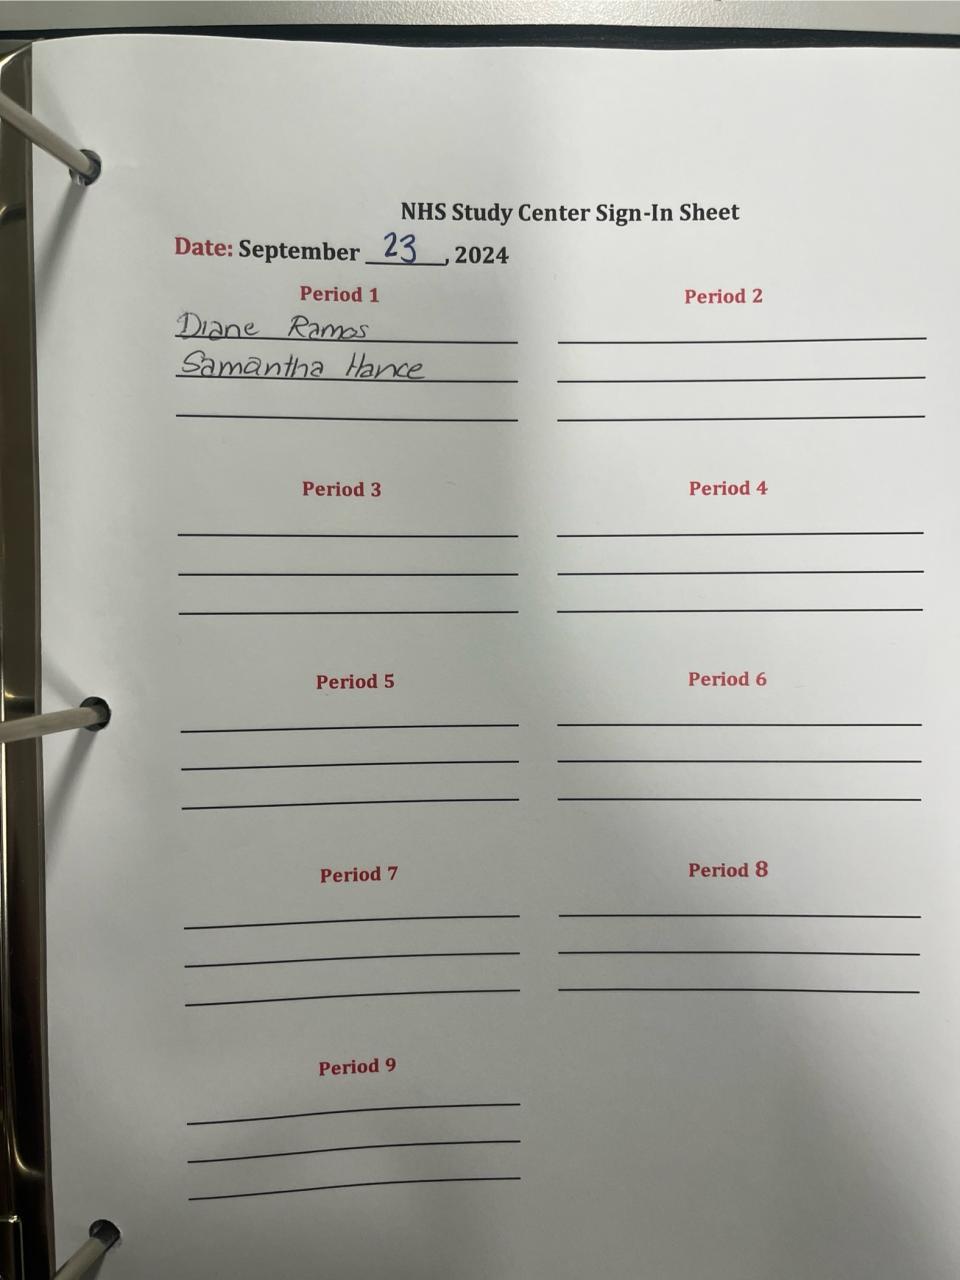 NHS Study Center Sign-In Sheet
Date: September 23, 2024
Period 1
Diane Ramos
Samantha Hance
Period 2
Period 3
Period 4
Period 5
Period 6
Period 7
Period 8
Period 9